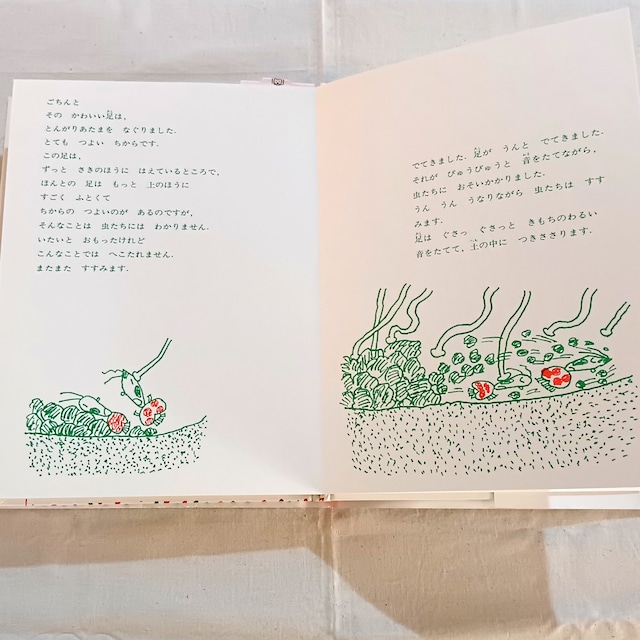 ごちんと
その　かわいい足は、
とんがりあたまを　なぐりました．
とても　つよい　ちからです．
この足は、
ずっと　さきのほうに　はえているところで、
ほんとの　足は　もっと　上のほうに
すごく　ふとくて
ちからの　つよいのが　あるのですが、
そんなことは　虫たちには　わかりません．
いたいと　おもったけれど
こんなことでは　へこたれません．
またまた　すすみます．
でてきました．足が　うんと　でてきました．
それが　ぴゅうぴゅうと　音をたてながら、
虫たちに　おそいかかりました．
うん　うん　うなりながら　虫たちは　すす
みます．
足は　ぐさっ　ぐさっと　きもちのわるい
音をたてて、土の中に　つきささります．